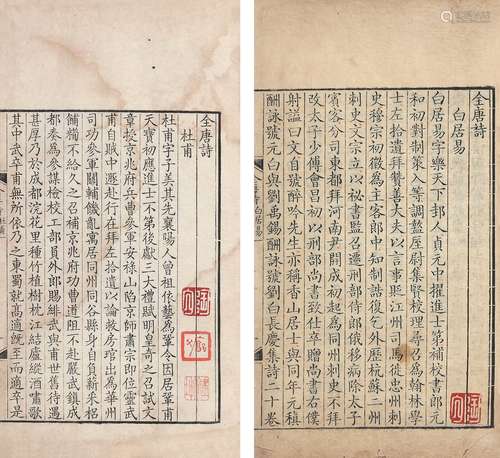 全唐詩
杜甫
杜甫字子美其先襄陽人曾祖依藝為鞏令因居鞏甫
天寶初應進士不第後獻三大禮賦明皇奇之召試文
章授京兆府兵曹參軍安祿山陷京師肅宗即位靈武
甫自賊中遯赴行在拜左拾遺以論救房琯出為華州
司功參軍關輔饑亂寓居同州同谷縣身自負薪采梠
餔糒不給久之召補京兆府功曹道阻不赴嚴武鎮成
都奏為參謀檢校工部員外郎賜緋武與甫世舊待遇
甚厚乃於成都浣花里種竹植樹枕江結廬縱酒嘯歌
其中武卒甫無所依乃之東蜀就高適既至而適卒是
全唐詩
白居易
白居易字樂天下邽人貞元中擢進士第補校書郎元
和初對制策入等調盩厔尉集賢校理尋召為翰林學
士左拾遺拜贊善大夫以言事貶江州司馬徙忠州刺
史穆宗初徵為主客郎中知制誥復乞外歷杭蘇二州
刺史文宗立以祕書監召遷刑部侍郎俄移病除太子
賓客分司東都拜河南尹開成初起為同州刺史不拜
改太子少傅會昌初以刑部尚書致仕卒贈尚書右僕
射諡曰文自號醉吟先生亦稱香山居士與同年元稹
酬詠號元白與劉禹錫酬詠號劉白長慶集詩二十卷
白居易